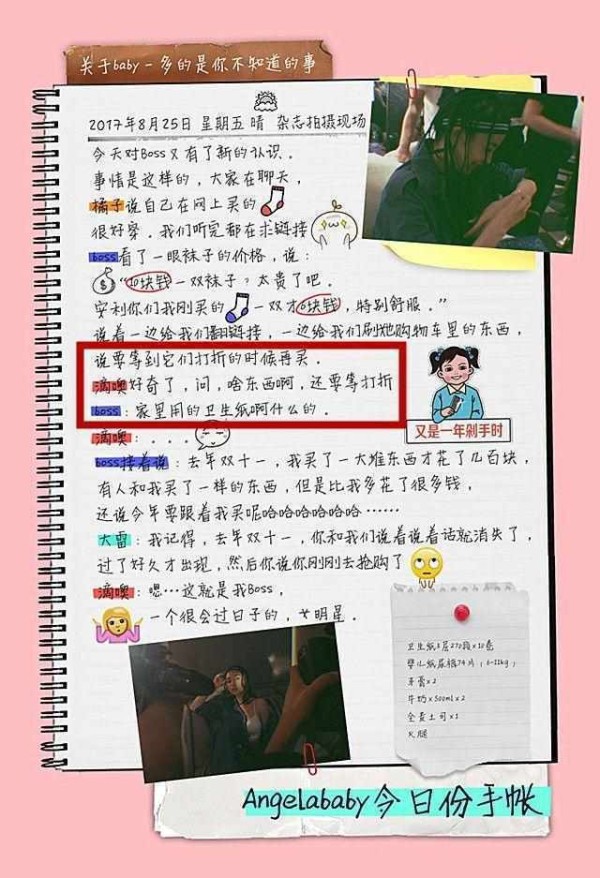 关于baby-多的是你不知道的事
2017年8月25日 星期五 晴 杂志拍摄现场
今天对Boss又有了新的认识。
事情是这样的，大家在聊天，
橘子说自己在网上买的
很好穿。我们听完都在求链接
boss看了一眼袜子的价格，说：
$
“10块钱一双袜子？太贵了吧。
安利你们我刚买的 一双才6块钱，特别舒服。”
说着一边给我们翻链接，一边给我们刷她购物车里的东西，
说要等到它们打折的时候再买。
滴噢好奇了，问，啥东西啊，还要等打折
boss：家里用的卫生纸啊什么的。
滴噢：...
又是一年剁手时
boss接着说：去年双十一，我买了一大堆东西才花了几百块，
有人和我买了一样的东西，但是比我多花了很多钱，
还说今年要跟着我买呢哈哈哈哈哈哈……
大雷：我记得，去年双十一，你和我们说着说着话就消失了，
过了好久才出现，然后你说你刚刚去抢购了
滴噢：嗯…这就是我Boss，
一个很会过日子的，女明星。
卫生纸3层270段x10卷
婴儿纸尿裤74片（6-11kg）
牙膏x2
牛奶x500mlx2
全麦土司x1
火腿
Angelababy今日份手帐